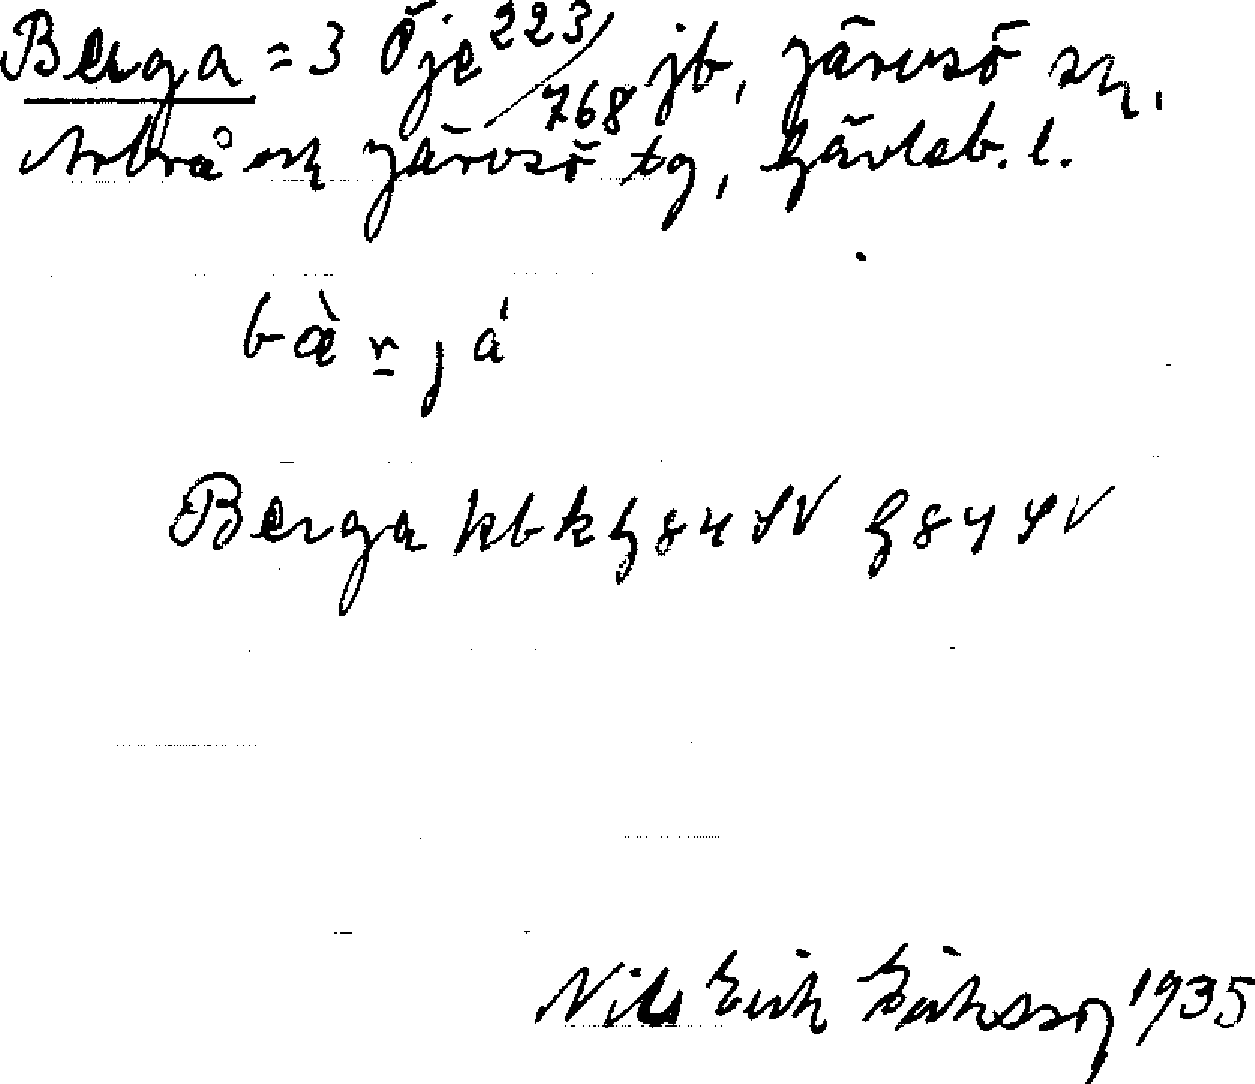 Berga = 3 Öje 223/768 jb, Järvsö sn,
Arbrå och Järvsö tg, Gävleb. l.
bὰr̲já
Berga kbk G 84 SV G 84 SV
Nils Erik 1935